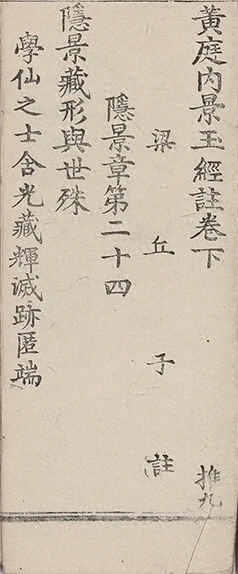 黃庭內景玉經註卷下
推九
梁丘子註
隱景章第二十四
隱景藏形與世殊
學仙之士含光藏輝滅跡匿端